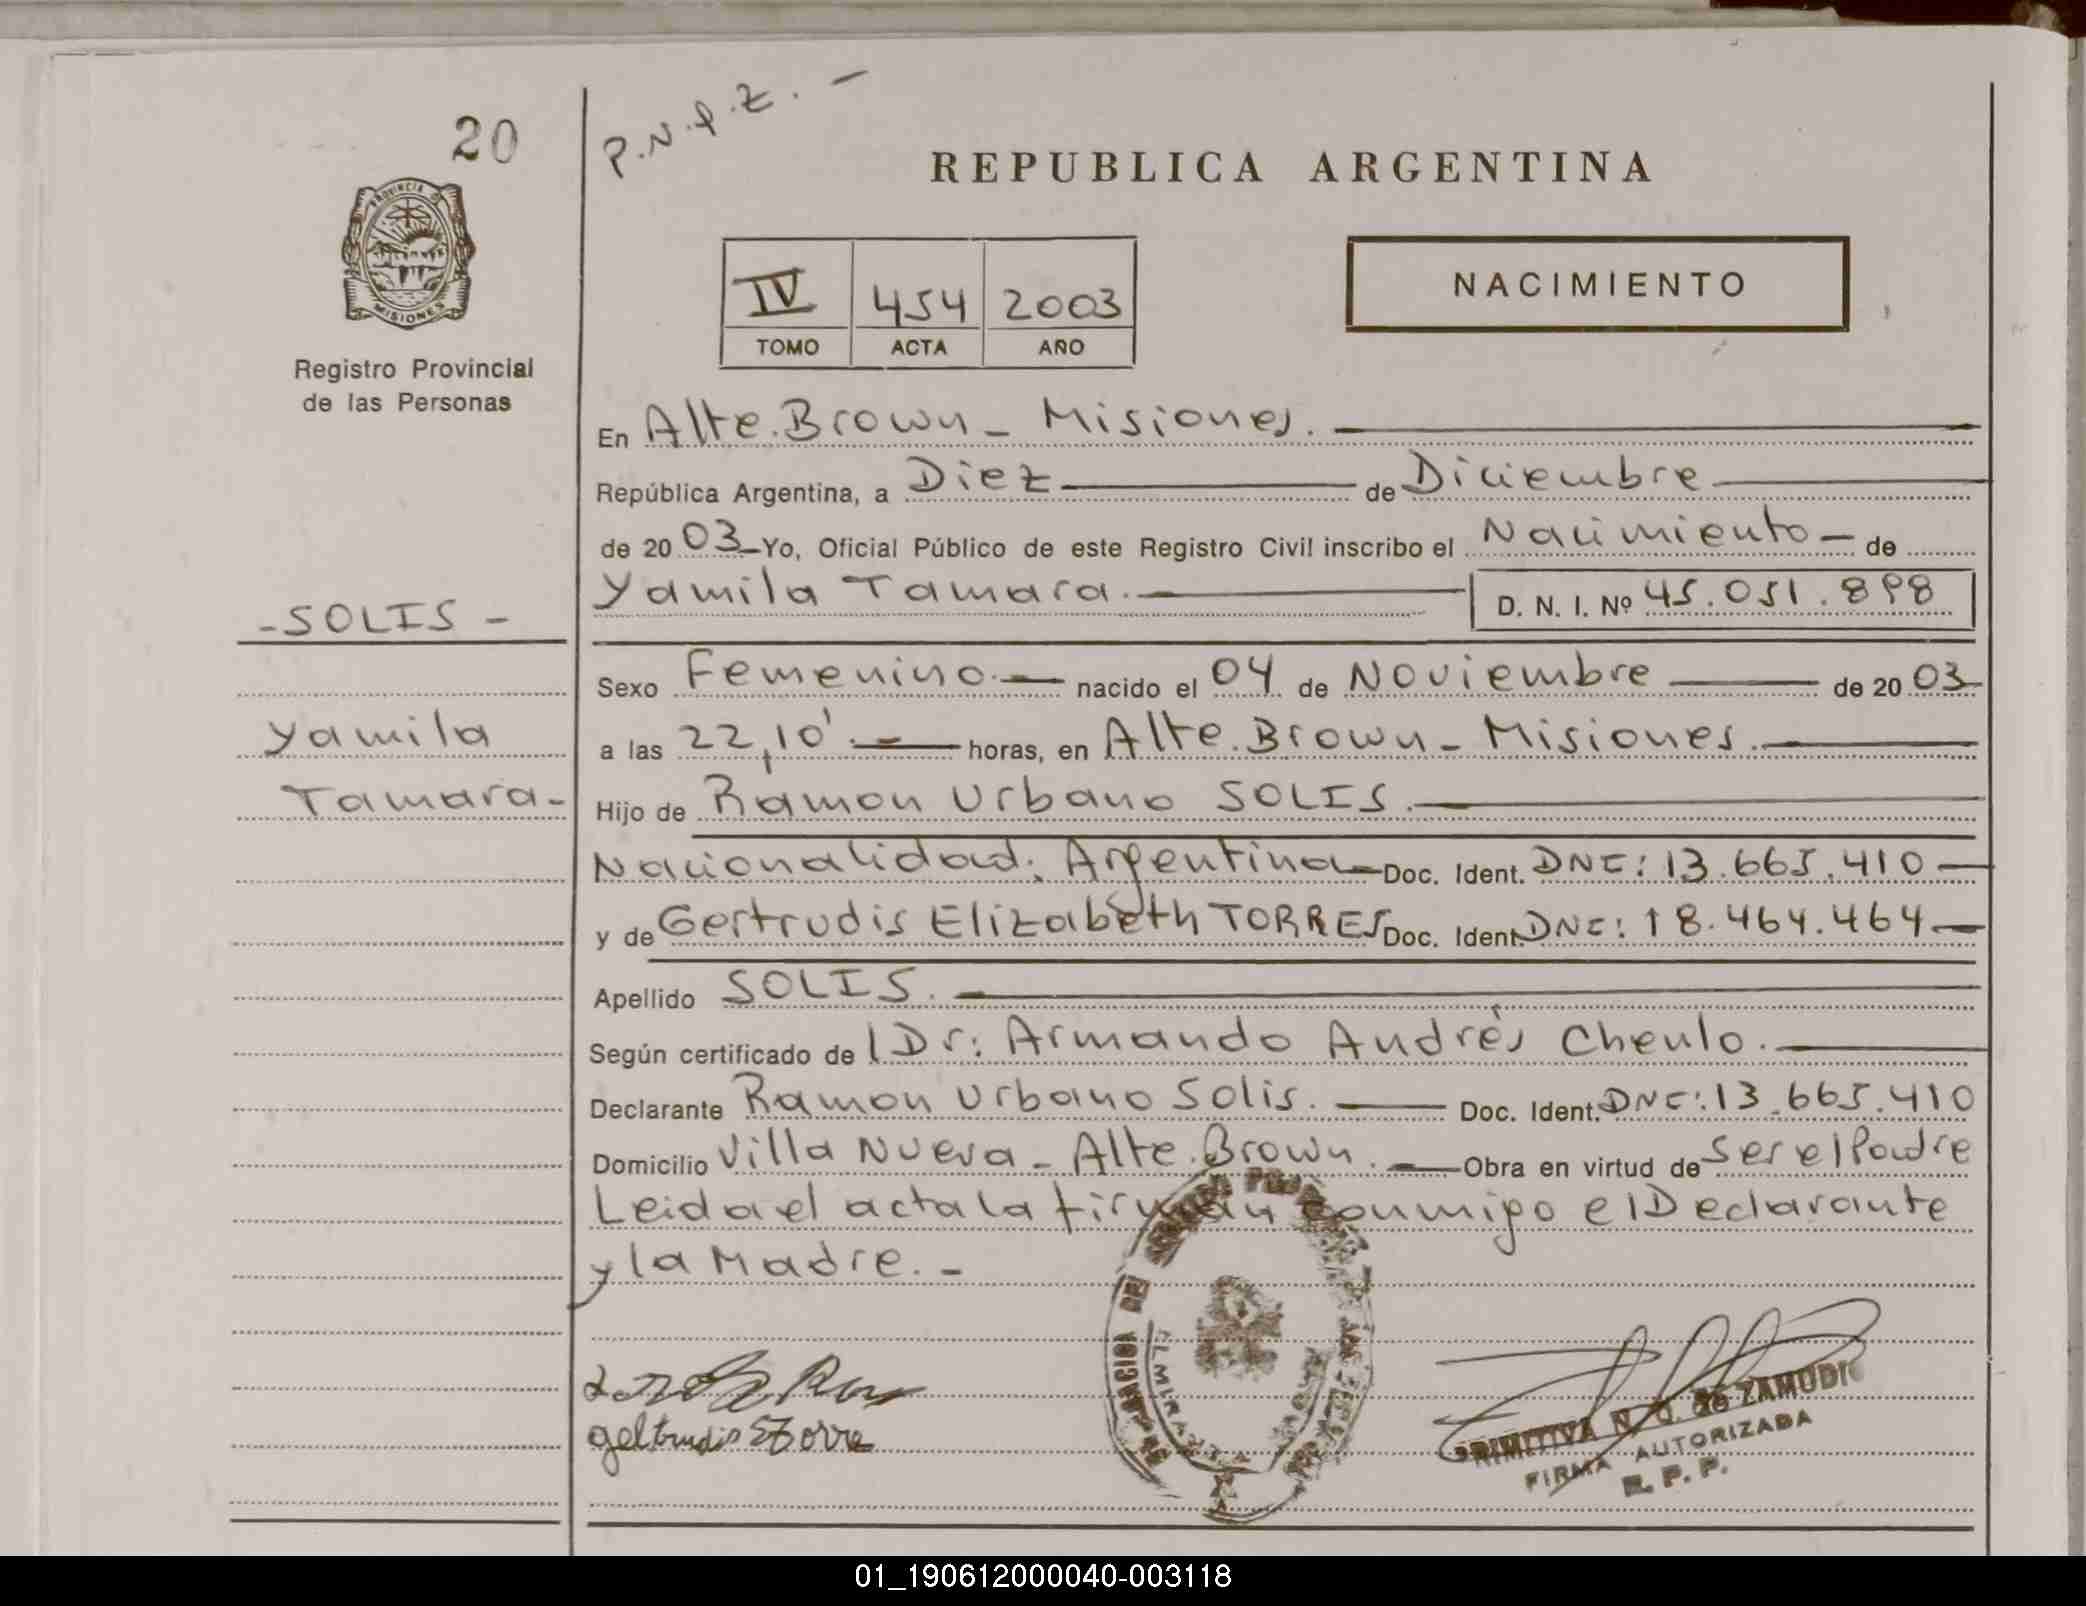 20
P.N.f.Z. -
REPUBLICA ARGENTINA
PROVINCIA DE
MISIONES
IV 454 2003
TOMO ACTA AÑO
NACIMIENTO
Registro Provincial
de las Personas
En Alte. Brown - Misiones.
República Argentina, a Diez de Diciembre
de 20 03 Yo, Oficial Público de este Registro Civil inscribo el Nacimiento de
Yamila Tamara. D. N. I. Nº 45.051.898
- SOLIS -
Sexo Femenino. nacido el 04 de Noviembre de 20 03
Yamila
a las 22,10'. horas, en Alte. Brown - Misiones.
Tamara -
Hijo de Ramon Urbano SOLIS.
Nacionalidad: Argentina Doc. Ident. DNI: 13.665.410
y de Gertrudis Elizabeth TORRES Doc. Ident. DNI: 18.464.464
Apellido SOLIS.
Según certificado de l Dr: Armando Andrés Chenlo.
Declarante Ramon Urbano Solis. Doc. Ident. DNI: 13.665.410
Domicilio Villa Nueva - Alte. Brown. Obra en virtud de Ser el Padre
Leida el acta la firman conmigo el Declarante
y la Madre. -
geltrudis E torre
PRIMITIVA N. Q. de ZAMUDIO
FIRMA AUTORIZADA
R. P. P.
01_190612000040-003118